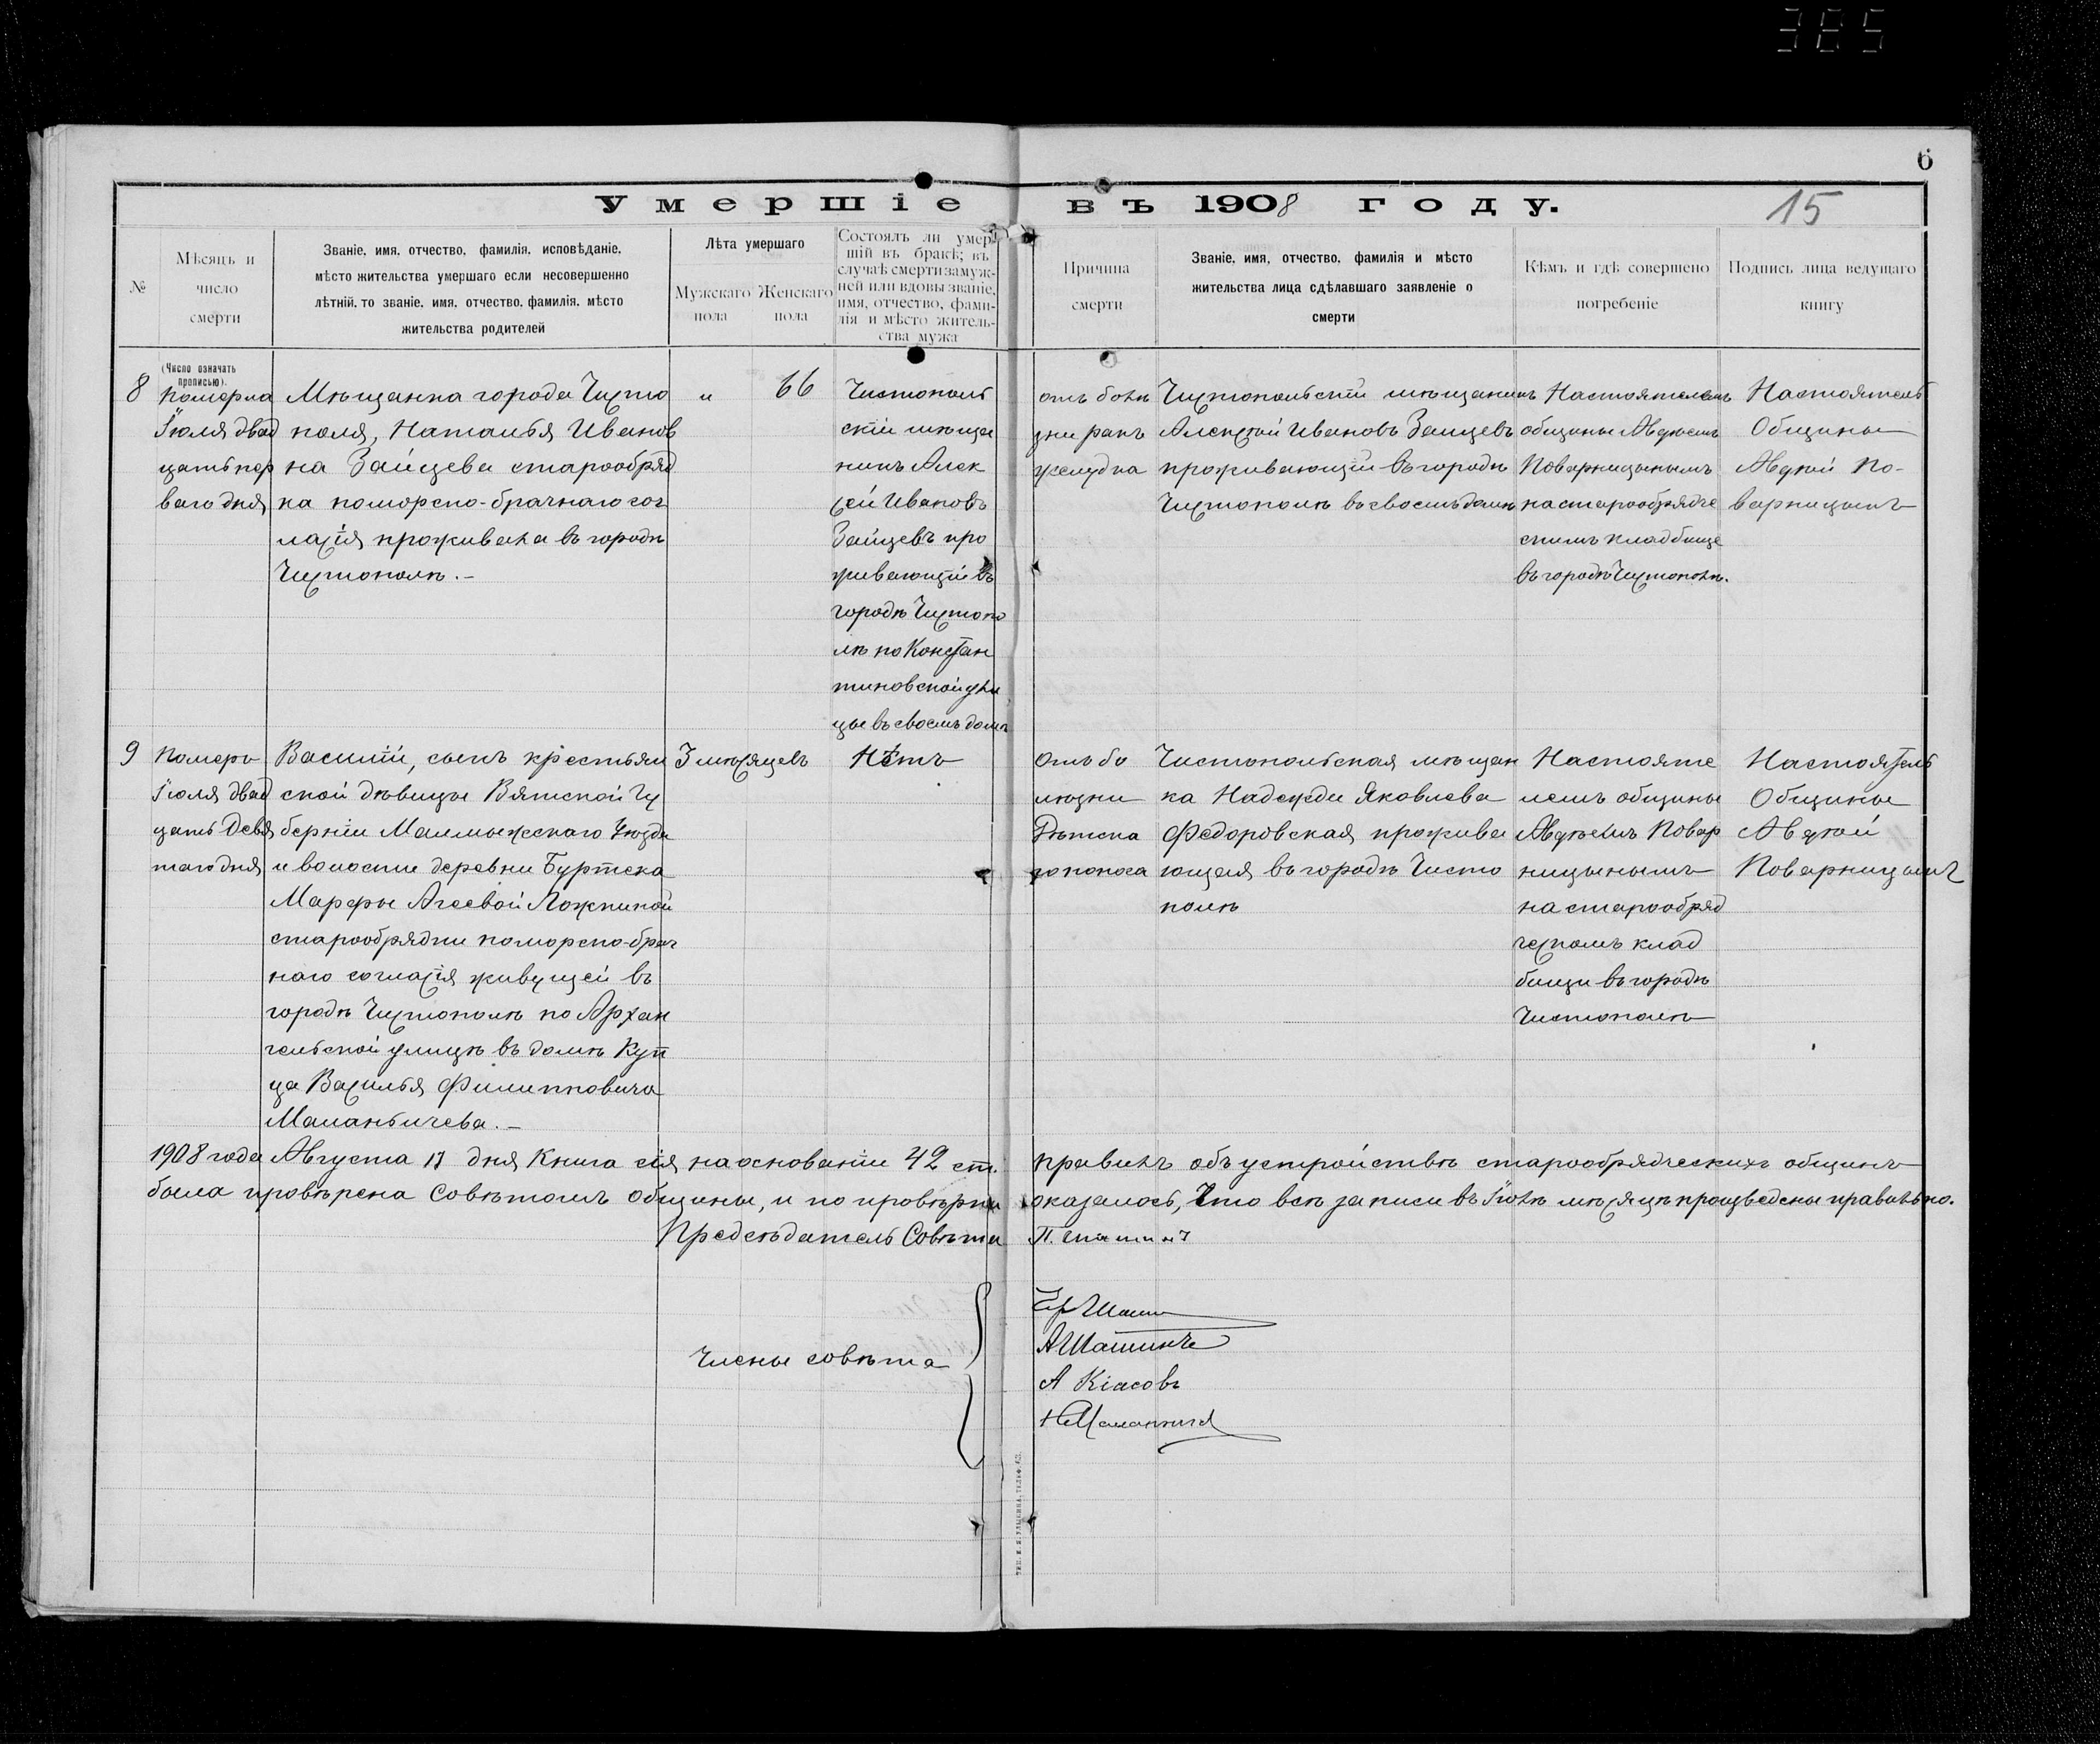 385
6
Умершіе въ 1908 году.
15
№
Мѣсяцъ и
число
смерти
Званіе, имя, отчество, фамилія, исповѣданіе,
мѣсто жительства умершаго если несовершенно
лѣтній, то званіе, имя, отчество, фамилія, мѣсто
жительства родителей
Лѣта умершаго
Мужскаго
пола
Женскаго
пола
Состоялъ ли умер-
шій въ бракѣ; въ
случаѣ смерти замуж-
ней или вдовы званіе,
имя, отчество, фами-
лія и мѣсто житель-
ства мужа
Причина
смерти
Званіе, имя, отчество, фамилія и мѣсто
жительства лица сдѣлавшаго заявленіе о
смерти
Кѣмъ и гдѣ совершено
погребеніе
Подпись лица ведущаго
книгу
(Число означать
прописью).
8
померла
Іюля двад
цать пер
ваго дня
Мѣщанка города Чисто
поля, Наталья Иванов
на Зайцева старообряд
ка поморско-брачнаго сог
ласія проживала въ городѣ
Чистополѣ.-
"
66
Чистополь
скій мѣща
нинъ Алек
сѣй Ивановъ
Зайцевъ про
живающій въ
городѣ Чистопо
лѣ по Констан
тиновской ули
цы въ своемъ домѣ
отъ болѣ
зни ракъ
желудка
Чистопольскій мѣщанинъ
Алексѣй Ивановъ Зайцевъ
проживающій въ городѣ
Чистополѣ въ своемъ домѣ
Настоятелемъ
общины Авдѣемъ
Поварницынымъ
на старообрядче
скимъ кладбище
въ городѣ Чистополѣ.
Настоятель
Общины
Авдѣй По-
варницынъ
9
Померъ
Іюля двад
цать Девя
таго дня
Василій, сынъ крестьян
ской дѣвицы Вятской Гу
берніи Малмыжскаго Уѣзда
и волости деревни Буртека
Марфы Агеевой Ложкиной
старообрядки поморско-брач
наго согласія живущей въ
городѣ Чистополѣ по Архан
гельской улицѣ въ домѣ Куп
ца Василья Филипповича
Маланьичева.-
3 мѣсяцевъ
Нѣтъ
Отъ бо
лѣзни
Дѣтска
го поноса
Чистопольская мѣщан
ка Надежда Яковлева
Федоровская, прожива
ющая въ городѣ Чисто
полѣ
Настояте
лемъ общины
Авдѣемъ Повар
ницынымъ
на старообряд
ческомъ клад
бищи въ городѣ
Чистополѣ
Настоятель
Общины
Авдѣй
Поварницынъ
1908 года Августа 17 дня Книга сія на основаніи 42 ст. правилъ объ устройствѣ старообрядческихъ общинъ
была провѣрена Совѣтомъ общины, и по провѣрки оказалось, Что всѣ записи въ Іюлѣ мѣсяцѣ произведены правильно.
Предсѣдатель Совѣта
Члены совѣта
А Шашинъ
А Кіасовъ